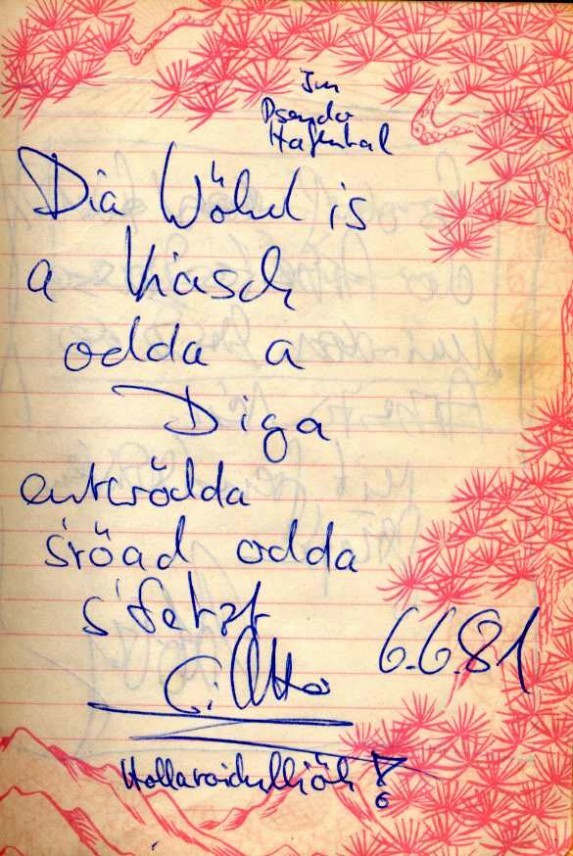 Im
Pseudo
Hafental
Dia Wöhd is
a Hiasch
odda a
Diga
entwödda
s'röad odda
s'fetzt
C. Otto
6.6.81
Hollaroidulliöh!